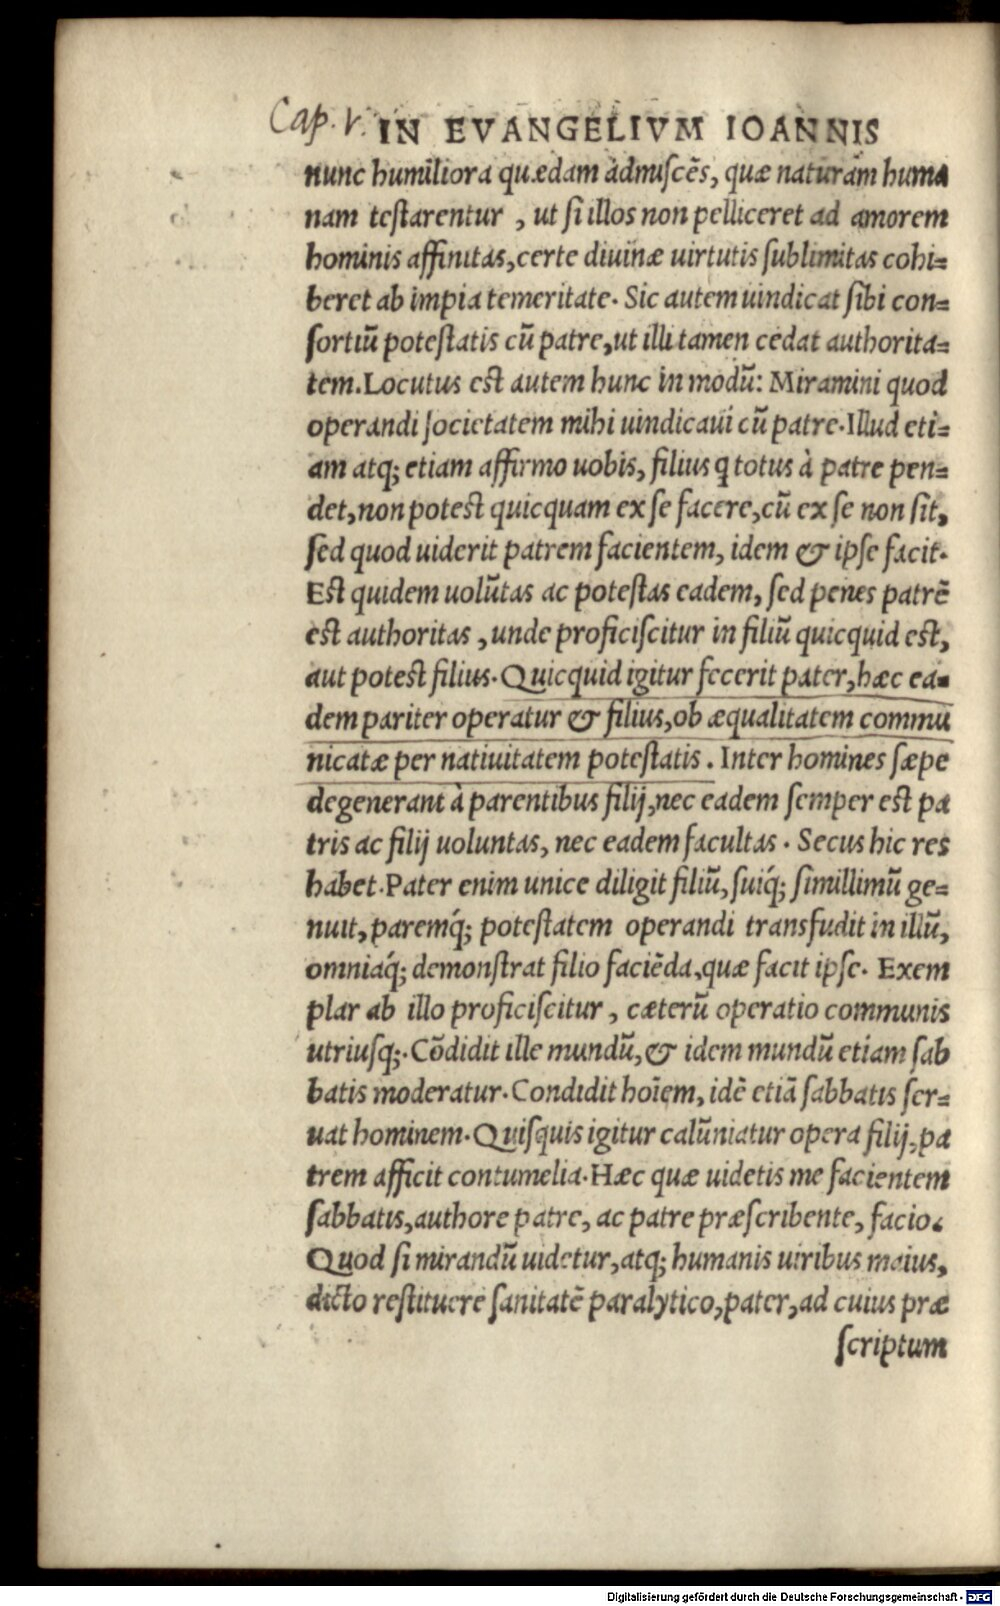 Cap. V. IN EVANGELIVM IOANNIS
nunc humiliora quædam admiscẽs, quæ naturam huma
nam testarentur , ut si illos non pelliceret ad amorem
hominis affinitas, certe diuinæ uirtutis sublimitas cohi=
beret ab impia temeritate. Sic autem uindicat sibi con=
sortiũ potestatis cũ patre, ut illi tamen cedat authorita=
tem. Locutus est autem hunc in modũ: Miramini quod
operandi societatem mihi uindicaui cũ patre. Illud eti=
am atq; etiam affirmo uobis, filius ꝗ totus à patre pen=
det, non potest quicquam ex se facere, cũ ex se non sit,
sed quod uiderit patrem facientem, idem & ipse facit.
Est quidem uolũtas ac potestas eadem, sed penes patrẽ
est authoritas , unde proficiscitur in filiũ quicquid est,
aut potest filius. Quicquid igitur fecerit pater, hæc ea=
dem pariter operatur & filius, ob æqualitatem commu
nicatæ per natiuitatem potestatis . Inter homines sæpe
degenerant à parentibus filij, nec eadem semper est pa
tris ac filij uoluntas, nec eadem facultas . Secus hic res
habet. Pater enim unice diligit filiũ, suiq́; simillimũ ge=
nuit, paremq́; potestatem operandi transfudit in illũ,
omniaq́; demonstrat filio faciẽda, quæ facit ipse. Exem
plar ab illo proficiscitur , cæterũ operatio communis
utriusq;. Cõdidit ille mundũ, & idem mundũ etiam sab
batis moderatur. Condidit hoĩem, idẽ etiã sabbatis ser=
uat hominem. Quisquis igitur calũniatur opera filij, pa
trem afficit contumelia. Hæc quæ uidetis me facientem
sabbatis, authore patre, ac patre præscribente, facio.
Quod si mirandũ uidetur, atq; humanis uiribus maius,
dicto restituere sanitatẽ paralytico, pater, ad cuius præ
scriptum
Digitalisierung gefördert durch die Deutsche Forschungsgemeinschaft - DFG